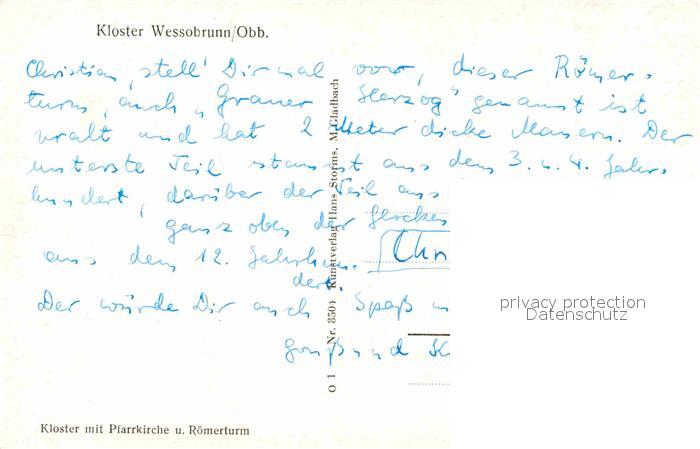 Kloster Wessobrunn/Obb.
Christian, stell' Dir mal vor, dieser Römer-
turm, auch „Grauer Herzog" genannt ist
uralt und hat 2 Meter dicke Mauern. Der
unterste Teil stammt aus dem 3. u. 4. Jahr-
hundert, darüber der Teil aus
ganz oben der Glocken
aus dem 12. Jahrhun-
dert.
Chr
Der würde Dir auch Spaß m
Gruß und K
privacy protection
Datenschutz
O 1 Nr. 8501 Kunstverlag Hans Storms, M.Gladbach
Kloster mit Pfarrkirche u. Römerturm